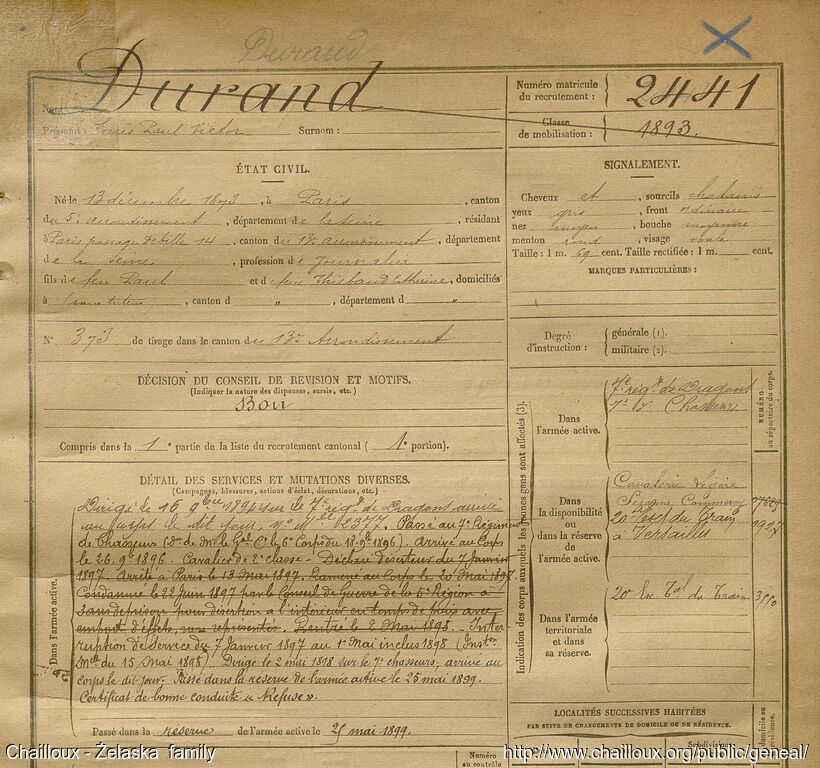 Durand
Durand
Nom :
Prénoms : Louis Paul Victor Surnom :
Numéro matricule du recrutement : 2441
Classe de mobilisation : 1893.
ÉTAT CIVIL.
Né le 13 décembre 1873, à Paris, canton
du 5e arrondissement, département de la Seine, résidant
à Paris passage 14, canton du 13e arrondissement, département
de la Seine, profession de Journalier
fils de feu Paul et de feue Thiebaud Catherine, domiciliés
à , canton d " , département d "
N° 373 de tirage dans le canton du 13e Arrondissement
DÉCISION DU CONSEIL DE REVISION ET MOTIFS.
(Indiquer la nature des dispenses, sursis, etc.)
Bon
Compris dans la 1e partie de la liste du recrutement cantonal ( 1e portion).
DÉTAIL DES SERVICES ET MUTATIONS DIVERSES.
(Campagnes, blessures, actions d'éclat, décorations, etc.)
Dirigé le 16 9bre 1894 sur le 7e régt de Dragons arrivé
au corps le dit jour, n° mle 2377. Passé au 7e Régiment
de Chasseurs (Don de Mr le Gal Ct le 6e Corps du 18.9bre 1896). Arrivé au Corps
le 26.9bre 1896. Cavalier de 2e classe - Déclaré déserteur du 7 Janvier
1897. Arrêté à Paris le 13 Mai 1897. Ramené au Corps le 20 Mai 1897.
Condamné le 22 Juin 1897 par le Conseil de Guerre de la 6e Région à
3 ans de prison pour désertion à l'intérieur en temps de paix avec
emport d'effets, non représentés. Rentré le 2 Mai 1898. - Inter
ruption de Service du 7 Janvier 1897 au 1er Mai inclus 1898 (Inston
Mlle du 15 Mai 1898). Dirigé le 2 mai 1898 sur le 7e chasseurs, arrivé au
corps le dit jour. Passé dans la réserve de l'armée active le 25 mai 1899.
Certificat de bonne conduite « Refusé ».
Dans l'armée active.
Passé dans la réserve de l'armée active le 25 mai 1899.
SIGNALEMENT.
Cheveux et , sourcils chatains
yeux gris , front ordinaire
nez moyen , bouche moyenne
menton rond , visage ovale
Taille : 1 m. 69 cent. Taille rectifiée : 1 m. cent.
MARQUES PARTICULIÈRES :
Degré d'instruction : générale (1).
militaire (2).
Indication des corps auxquels les jeunes gens sont affectés (3).
NUMÉRO au répertoire du corps.
Dans l'armée active.
7e régt de Dragons
7e dº Chasseurs
Dans la disponibilité ou dans la réserve de l'armée active.
Cavalerie Légère
Commercy
20e Escon du Train
à Versailles
Dans l'armée territoriale et dans sa réserve.
20e Er Tal du Train
LOCALITÉS SUCCESSIVES HABITÉES
PAR SUITE DE CHANGEMENTS DE DOMICILE OU DE RÉSIDENCE.
Numéro au contrôle
Subdivisions
Chailloux - Żelaska family
http://www.chailloux.org/public/geneal/